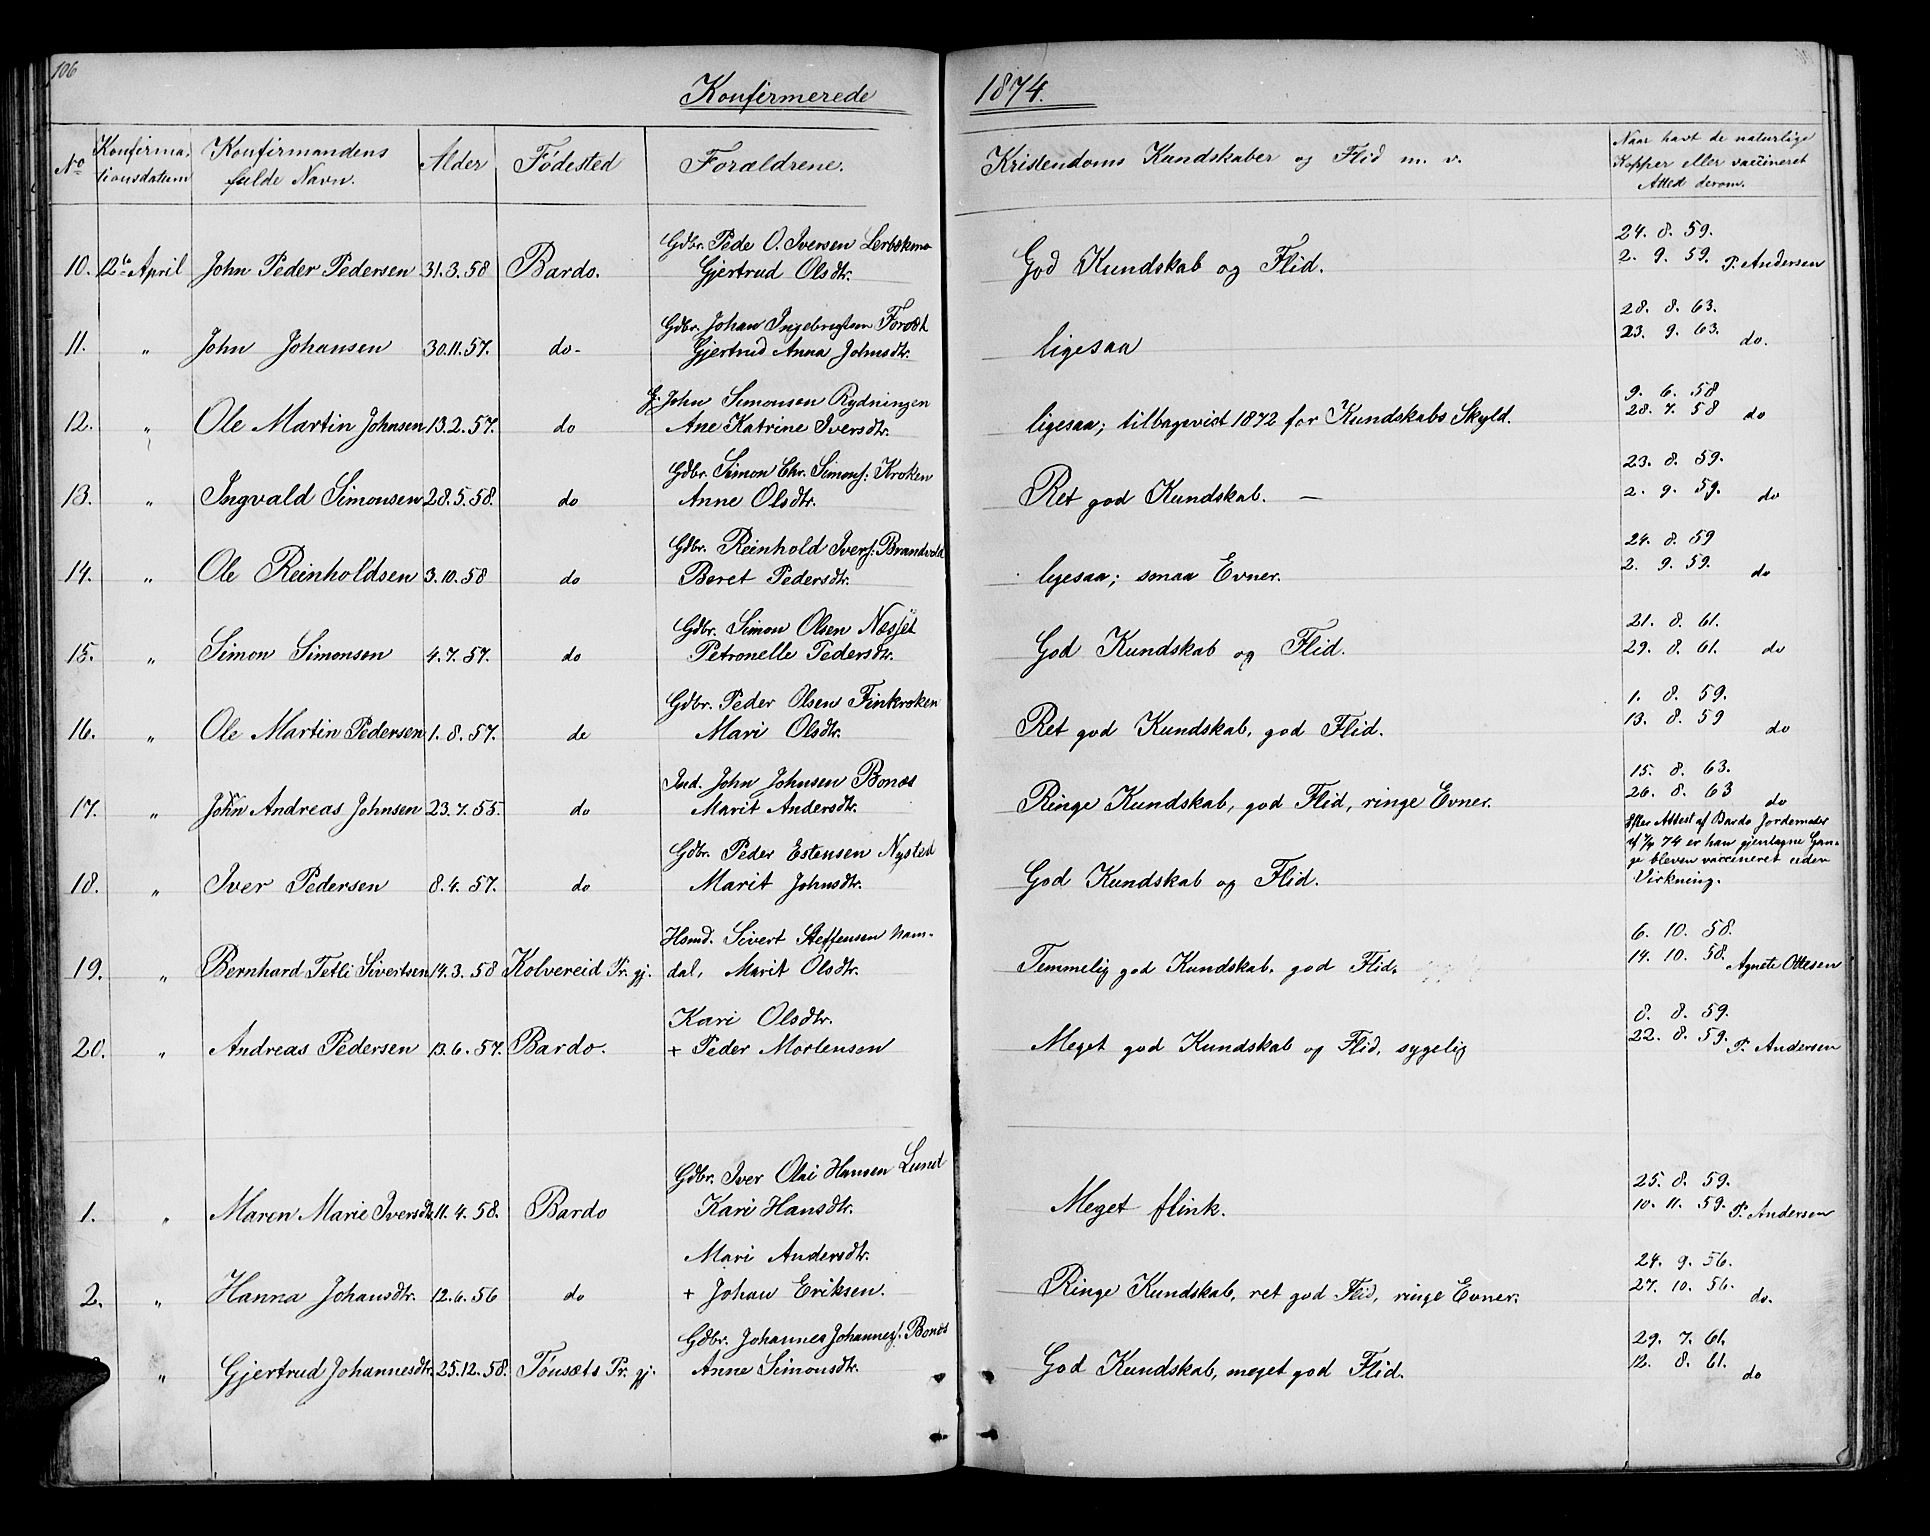 106
Konfirmerede 1874.
No Konfirma, tionsdatum Konfirmandens fulde Navn. Alder Födested Forældrene. Kristendoms Kundskaber og Flid m. v. Naar havt de naturlige Kopper eller vaccineret Attest derom.
Gdbr. Peder O. Iversen 24. 8. 59.
10. 12te April John Peder Pedersen 31.3.58 Bardo. Gjertrud Olsdtr. God Kundskab og Flid. 2. 9. 59. P. Andersen
Gdbr. Johan Ingebrigtsen Foræt 28. 8. 63.
11. " John Johansen 30.11.57. do- Gjertrud Anna Johnsdtr. ligesaa 23. 9. 63. do.
G. John Simonsen Rydningen 9. 6. 58
12. " Ole Martin Johnsen 13.2.57. do Ane Katrine Iversdtr. ligesaa; tilbagevist 1872 for Kundskabs Skyld. 28. 7. 58 do
Gdbr. Simon Chr. Simons: Kroken 23. 8. 59.
13. " Ingvald Simonsen 28.5.58. do Anne Olsdtr. Ret god Kundskab. — 2. 9. 59. do
Gdbr. Reinhold Ivers: Brandvold 24. 8. 59
14. " Ole Reinholdsen 3.10.58 do Beret Pedersdtr. ligesaa; smaa Evner. 2. 9. 59. do
Gdbr. Simon Olsen Næsset 21. 8. 61.
15. " Simon Simonsen 4.7.57. do Petronelle Pedersdtr. God Kundskab og Flid. 29. 8. 61. do
Gdbr. Peder Olsen Finkroken 1. 8. 59.
16. " Ole Martin Pedersen 1.8.57. do Mari Olsdtr. Ret god Kundskab, god Flid. 13. 8. 59 do
Ind. John Johnsen Bonæs 15. 8. 63.
17. " John Andreas Johnsen 23.7.55. do Marit Andersdtr. Ringe Kundskab, god Flid, ringe Evner. 26. 8. 63 do
Gdbr. Peder Estensen Nysted Efter Attest af Bardo Jordemoder
af 7/4 74 er han gjentagne Gan-
ge bleven vaccineret uden
18. " Iver Pedersen 8.4.57. do Marit Johnsdtr. God Kundskab og Flid. Virkning.
Hsmd. Sivert Steffensen Nam- 6. 10. 58.
19. " Bernhard Tetli Sivertsen 14.3.58 Kolvereid Pr. gj. dal, Marit Olsdtr. Temmelig god Kundskab, god Flid. 14. 10. 58. Agnete Ottesen
Kari Olsdtr. 8. 8. 59.
20. " Andreas Pedersen 13.6.57. Bardo. + Peder Mortensen Meget god Kundskab og Flid, sygelig 22. 8. 59. P. Andersen
Gdbr. Iver Olai Hansen Lund 25. 8. 59.
1. " Maren Marie Iversdtr. 11.4.58. Bardo Kari Hansdtr. Meget flink. 10. 11. 59. P. Andersen
Mari Andersdtr. 24. 9. 56.
2. " Hanna Johansdtr. 12.6.56 do + Johan Eriksen. Ringe Kundskab, ret god Flid, ringe Evner. 27. 10. 56. do.
Gdbr. Johannes Johannes: Bonæs 29. 7. 61.
" Gjertrud Johannesdtr. 25.12.58. Tönsæts Pr. gj. Anne Simonsdtr. God Kundskab, meget god Flid. 12. 8. 61. do